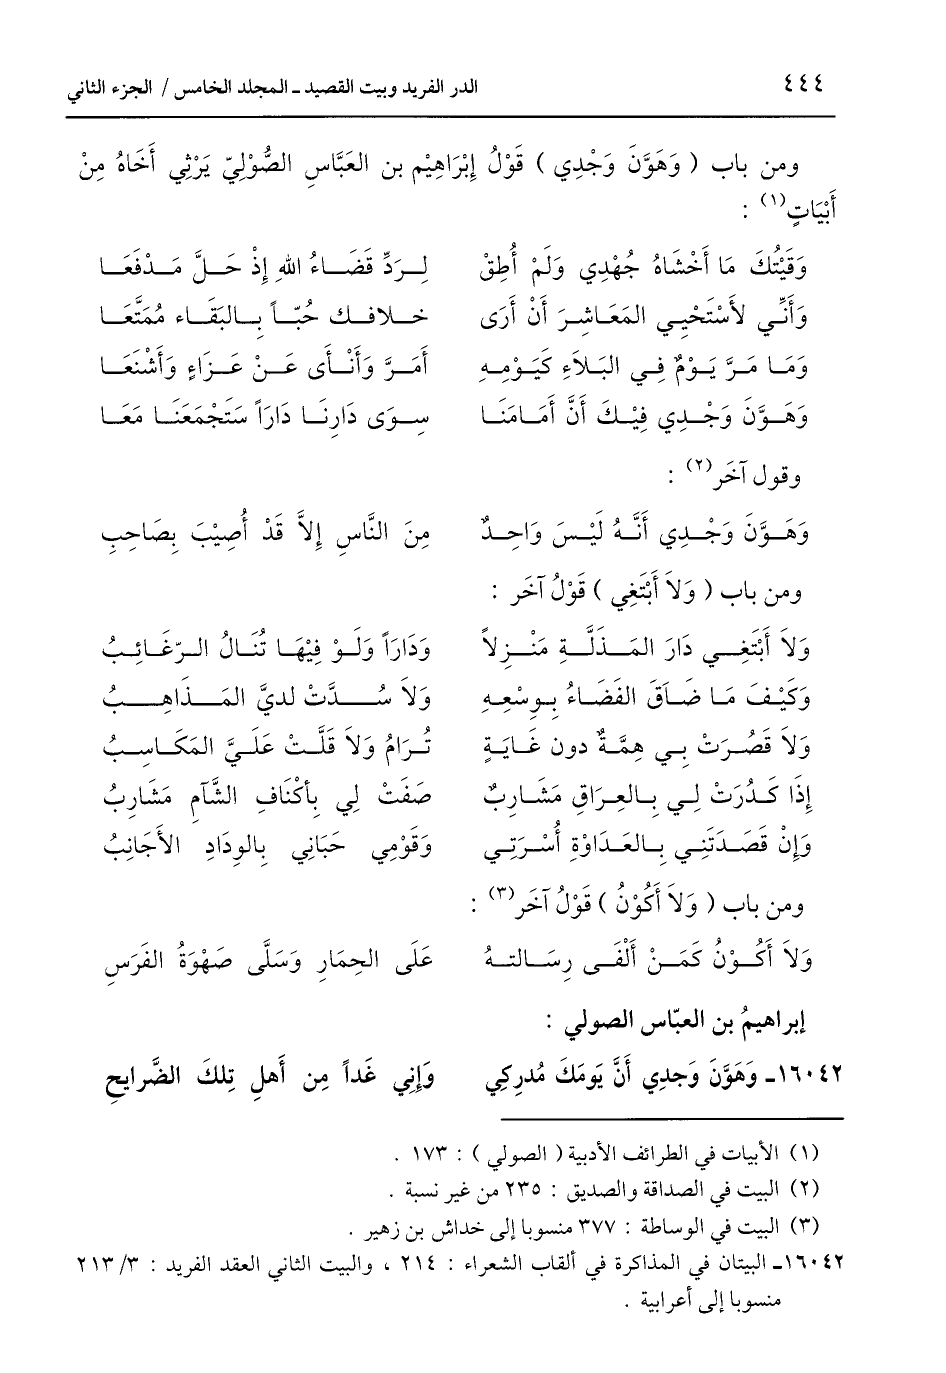 ٤٤٤ الدر الفريد وبيت القصيد ـ المجلد الخامس / الجزء الثاني
ومن باب ( وَهَوَّنَ وَجْدِي ) قَوْلُ إِبْرَاهِيْمِ بن العَبَّاسِ الصُّوْلِيّ يَرْثِي أَخَاهُ مِنْ
أَبْيَاتٍ(١) :
وَقَيْتُكَ مَا أَخْشَاهُ جُهْدِي وَلَمْ أُطِقْ لِرَدِّ قَضَاءُ اللهِ إِذْ حَلَّ مَدْفَعَا
وَأَنِّي لأَسْتَحْيِي المَعَاشِرَ أَنْ أَرَى خلافك حُبّاً بِالبَقَاء مُمَتَّعَا
وَمَا مَرَّ يَوْمٌ فِي البَلاَءِ كَيَوْمِهِ أَمَرَّ وَأَنْأَى عَنْ عَزَاءٍ وَأَشْنَعَا
وَهَوَّنَ وَجْدِي فِيْكَ أَنَّ أَمَامَنَا سِوَى دَارِنَا دَارَاً سَتَجْمَعَنَا مَعَا
وقول آخَر(٢) :
وَهَوَّنَ وَجْدِي أَنَّهُ لَيْسَ وَاحِدٌ مِنَ النَّاسِ إِلاَّ قَدْ أُصِيْبَ بِصَاحِبِ
ومن باب ( وَلاَ أَبْتَغِي ) قَوْلُ آخَر :
وَلاَ أَبْتَغِي دَارَ المَذَلَّةِ مَنْزِلاً وَدَارَاً وَلَوْ فِيْهَا تُنَالُ الرّغَائِبُ
وَكَيْفَ مَا ضَاقَ الفَضَاءُ بِوسْعِهِ وَلاَ سُدَّتْ لديَّ المَذَاهِبُ
وَلاَ قَصُرَتْ بِي هِمَّةٌ دون غَايَةٍ تُرَامُ وَلاَ قَلَّتْ عَلَيَّ المَكَاسِبُ
إِذَا كَدُرَتْ لِي بِالعِرَاقِ مَشَاربٌ صَفَتْ لِي بِأكْنَافِ الشَّآمِ مَشَاربُ
وَإِنْ قَصَدَتَنِي بِالعَدَاوَةِ أُسْرَتِي وَقَوْمِي حَبَانِي بِالودَادِ الأَجَانِبُ
ومن باب ( وَلاَ أَكُوْنُ ) قَوْلُ آخَر(٣) :
وَلاَ أَكُوْنُ كَمَنْ أَلْفَى رِسَالتهُ عَلَى الحِمَارِ وَسَلَّى صَهْوَةُ الفَرَسِ
إبراهيمُ بن العبّاس الصولي :
١٦٠٤٢ـ وَهَوَّنَ وَجدِي أَنَّ يَومَكَ مُدرِكِي وَإِنِي غَداً مِن أَهلِ تِلكَ الضَّرايِحِ
(١) الأبيات في الطرائف الأدبية ( الصولي ) : ١٧٣ .
(٢) البيت في الصداقة والصديق : ٢٣٥ من غير نسبة .
(٣) البيت في الوساطة : ٣٧٧ منسوبا إلى خداش بن زهير .
١٦٠٤٢ـ البيتان في المذاكرة في ألقاب الشعراء : ٢١٤ ، والبيت الثاني العقد الفريد : ٣/ ٢١٣
منسوبا إلى أعرابية .